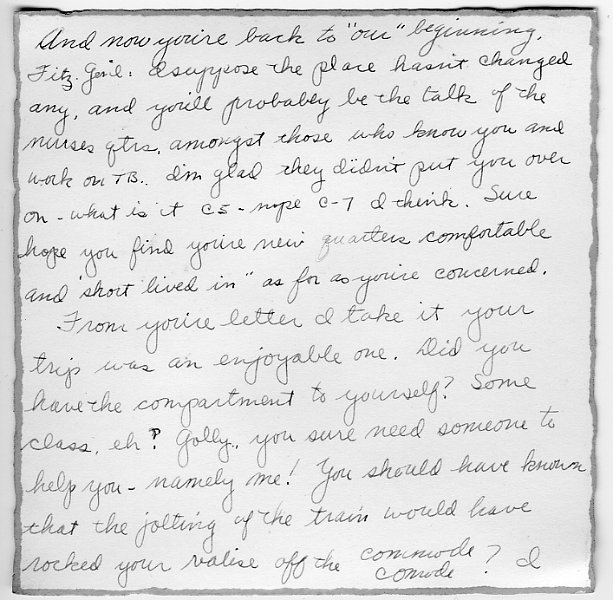 And now you're back to "our" beginning,
Fitz. Gen'l. I suppose the place hasn't changed
any, and you'll probabley be the talk of the
nurses qtrs. amongst those who know you and
work on TB.. I'm glad they didn't put you over
on - what is it C5 - nope C-7 I think. Sure
hope you find you're new quarters comfortable
and "short lived in" as for as you're concerned.
From you're letter I take it your
trip was an enjoyable one. Did you
have the compartment to yourself? Some
class, eh? Golly, you sure need someone to
help you - namely me! You should have known
that the jolting of the train would have
rocked your valise off the commode? I
comode